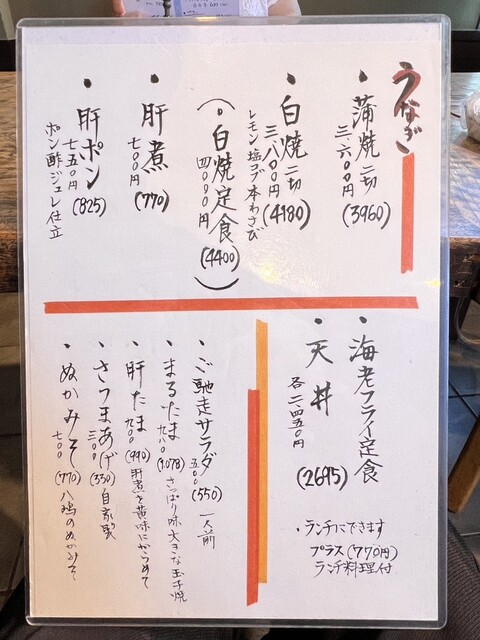 うなぎ
・蒲焼 二切
三、六〇〇円
(3960)
・白焼 二切
三、八〇〇円
(4180)
レモン塩コブ本わさび
(・白焼定食
四〇〇〇円
(4400))
・肝煮
七〇〇円
(770)
・肝ポン
七五〇円
(825)
ポン酢ジュレ仕立
・海老フライ定食
・天丼
各二四五〇円
(2695)
・ランチにできます
プラス(770円)
ランチ料理付
・ご馳走サラダ
五〇〇
(550)
一人前
・まるたま
九八〇
(1,078)
さっぱり味大きな玉子焼
・肝たま
九〇〇
(990)
肝煮を黄味にからめて
・さつまあげ
三〇〇
(330)
自家製
・ぬかみそ
七〇〇
(770)
八鶏のぬかみそ